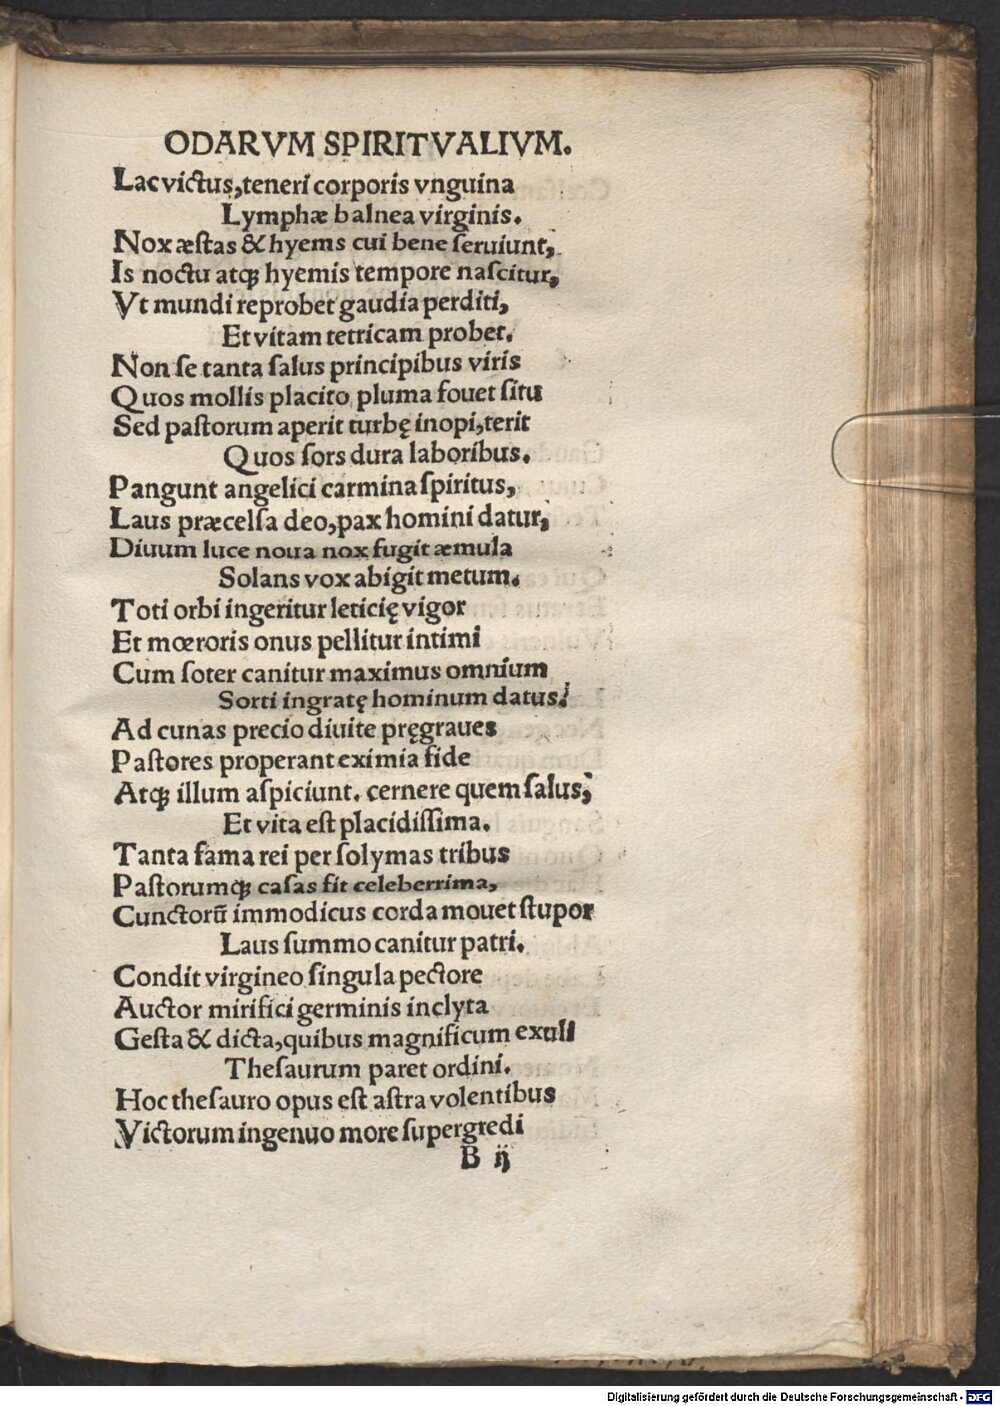 ODARVM SPIRITVALIVM.
Lac victus, teneri corporis vnguina
Lymphæ balnea virginis.
Nox æſtas & hyems cui bene ſeruiunt,
Is noctu atqꝫ hyemis tempore naſcitur,
Vt mundi reprobet gaudia perditi,
Et vitam tetricam probet.
Non ſe tanta ſalus principibus viris
Quos mollis placito pluma fouet ſitu
Sed paſtorum aperit turbę inopi, terit
Quos ſors dura laboribus.
Pangunt angelici carmina ſpiritus,
Laus præcelſa deo, pax homini datur,
Diuum luce noua nox fugit æmula
Solans vox abigit metum.
Toti orbi ingeritur leticię vigor
Et mœroris onus pellitur intimi
Cum ſoter canitur maximus omnium
Sorti ingratę hominum datus.
Ad cunas precio diuite pręgraues
Paſtores properant eximia fide
Atqꝫ illum aſpiciunt. cernere quem ſalus,
Et vita eſt placidiſſima.
Tanta fama rei per ſolymas tribus
Paſtorumqꝫ caſas fit celeberrima,
Cunctorũ immodicus corda mouet ſtupor
Laus ſummo canitur patri.
Condit virgineo ſingula pectore
Auctor mirifici germinis inclyta
Geſta & dicta, quibus magnificum exuli
Theſaurum paret ordini.
Hoc theſauro opus eſt aſtra volentibus
Victorum ingenuo more ſupergredi
B ij
Digitalisierung gefördert durch die Deutsche Forschungsgemeinschaft - DFG